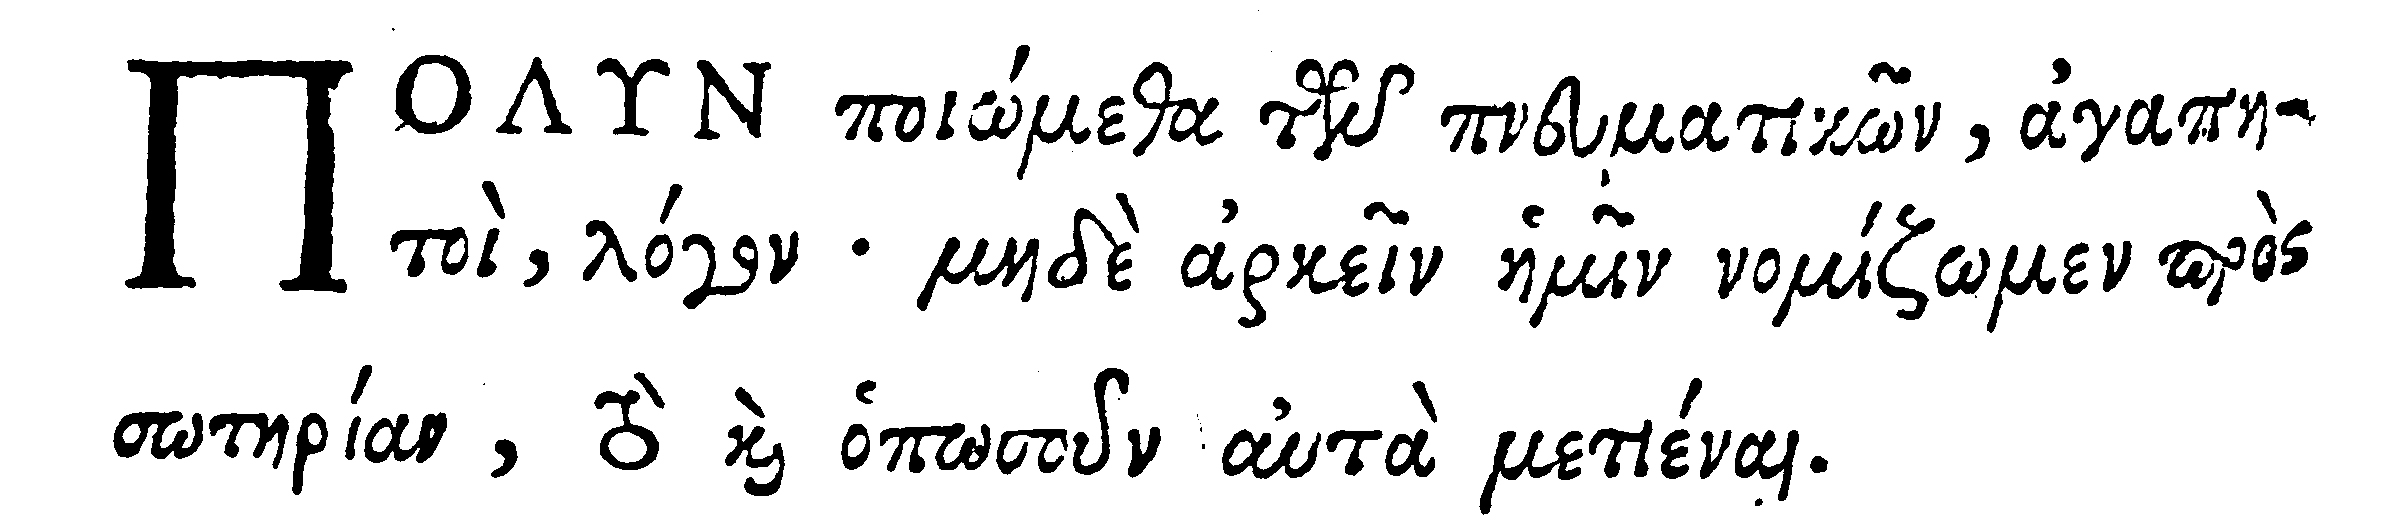 ΠΟΛΥΝ ποιώμεθα τῶν πνευματικῶν, ἀγαπη-
τοὶ, λόγον · μηδὲ ἀρκεῖν ἡμῖν νομίζωμεν πρὸς
σωτηρίαν, τὸ καὶ ὁπωσοῦν αὐτὰ μετιέναι.